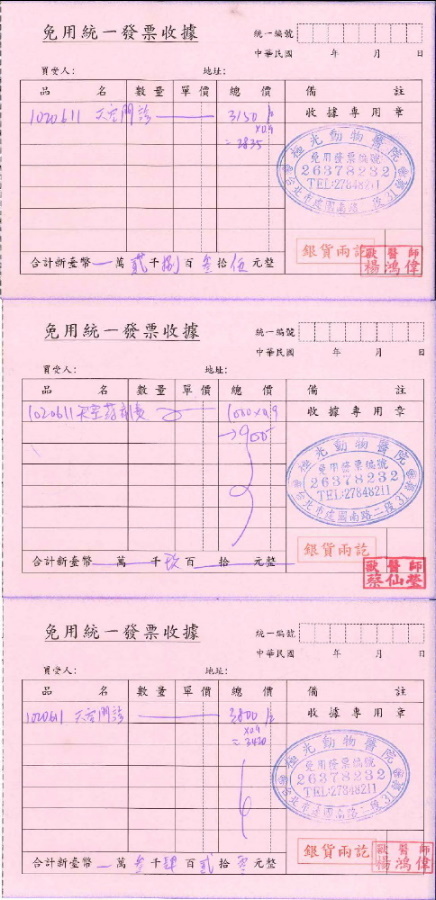 免用統一發票收據
統一編號
中華民國 年 月 日
買受人： 地址：
品 名 數量 單價 總價 備 註
1020611 天空門診 3150 收據專用章
×0.9
=2835
極光動物醫院
免用發票編號
26378232
TEL:27848211
台北市建國南路二段31號
銀貨兩訖
獸醫師
楊鴻偉
合計新臺幣 萬 貳 千 捌 百 叁 拾 伍 元整
免用統一發票收據
統一編號
中華民國 年 月 日
買受人： 地址：
品 名 數量 單價 總價 備 註
1020611 天空 1000×0.9 收據專用章
→900
極光動物醫院
免用發票編號
26378232
TEL:27848211
台北市建國南路二段31號
銀貨兩訖
獸醫師
合計新臺幣 萬 千 玖 百 拾 元整
免用統一發票收據
統一編號
中華民國 年 月 日
買受人： 地址：
品 名 數量 單價 總價 備 註
1020611 天空門診 3800 收據專用章
×0.9
=3420
極光動物醫院
免用發票編號
26378232
TEL:27848211
台北市建國南路二段31號
銀貨兩訖
獸醫師
楊鴻偉
合計新臺幣 萬 叁 千 肆 百 貳 拾 零 元整